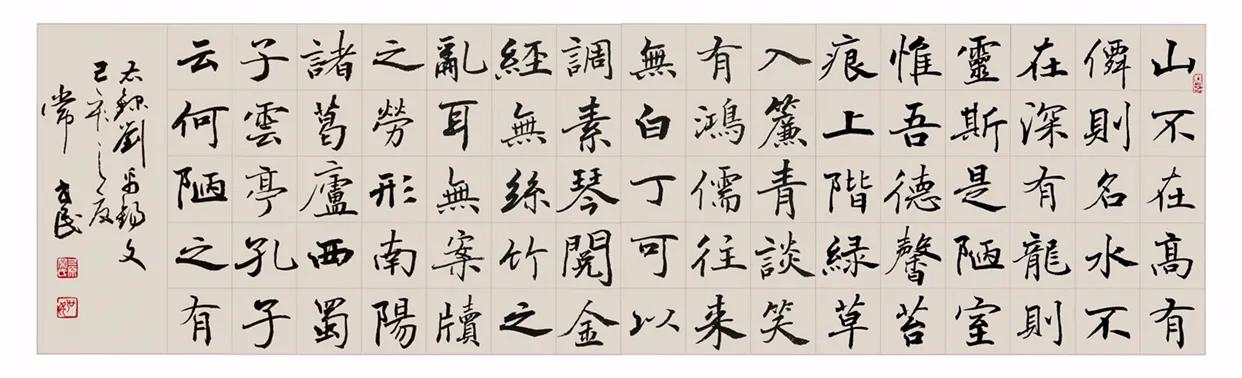 山不在高有
僊則名水不
在深有龍則
靈斯是陋室
惟吾德馨苔
痕上階緑草
入簾青談笑
有鴻儒往来
無白丁可以
調素琴閲金
經無絲竹之
亂耳無案牘
之勞形南陽
諸葛廬西蜀
子雲亭孔子
云何陋之有
右錄劉禹錫文
己之夏
常民